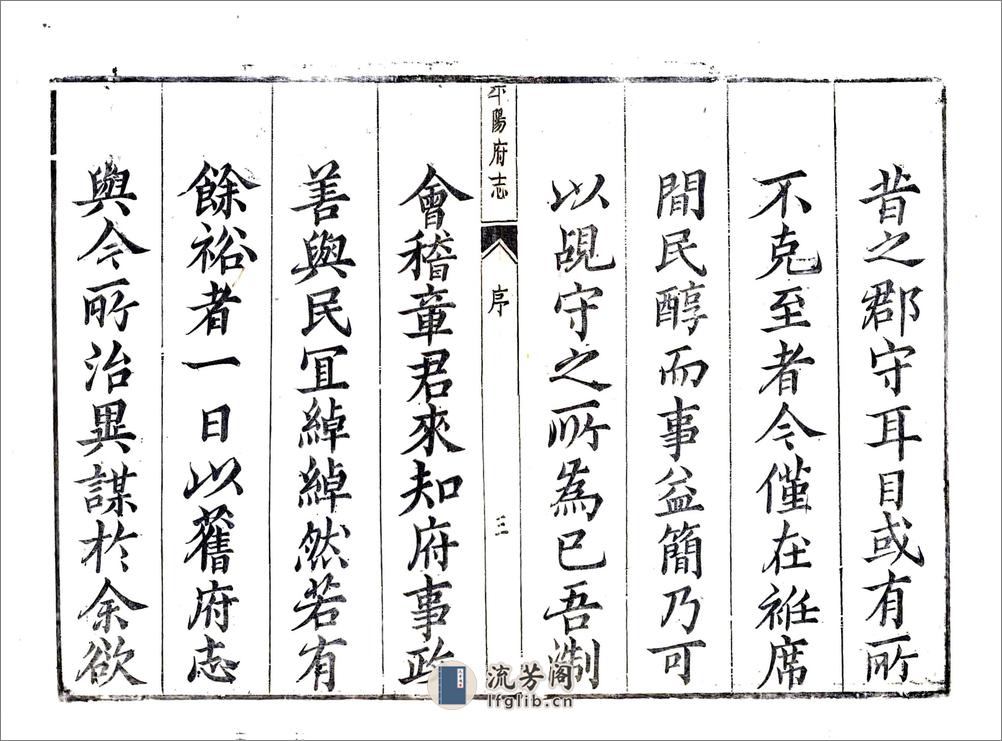 昔之郡守耳目或有所
不克至者今僅在袵席
間民醇而事益簡乃可
以覘守之所為已吾淛
平陽府志
序
三
會稽章君來知府事政
善與民冝綽綽然若有
餘裕者一日以舊府志
與今所治異謀於余欲
流芳阁
lfglib.cn